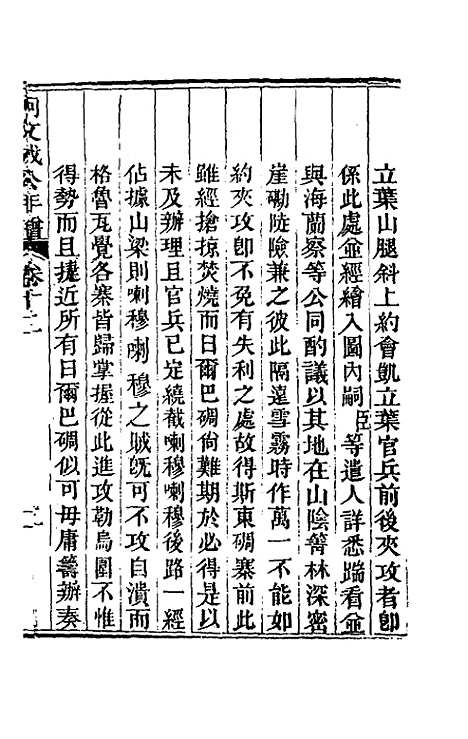 立葉山腿斜上約會凱立葉官兵前後夾攻者卽
係此處並經繪入圖內嗣臣等遣人詳悉踹看並
與海蘭察等公同酌議以其地在山陰箐林深密
崖磡陡險兼之彼此隔遠雪霧時作萬一不能如
約夾攻卽不免有失利之處故得斯東碉寨前此
雖經搶掠焚燒而日爾巴碉尙難期於必得是以
未及辦理且官兵已定繞截喇穆喇穆後路一經
佔據山梁則喇穆喇穆之賊旣可不攻自潰而
格魯瓦覺各寨皆歸掌握從此進攻勒烏圍不惟
得勢而且捷近所有日爾巴碉似可毋庸籌辦奏
阿文成公年譜 卷十二